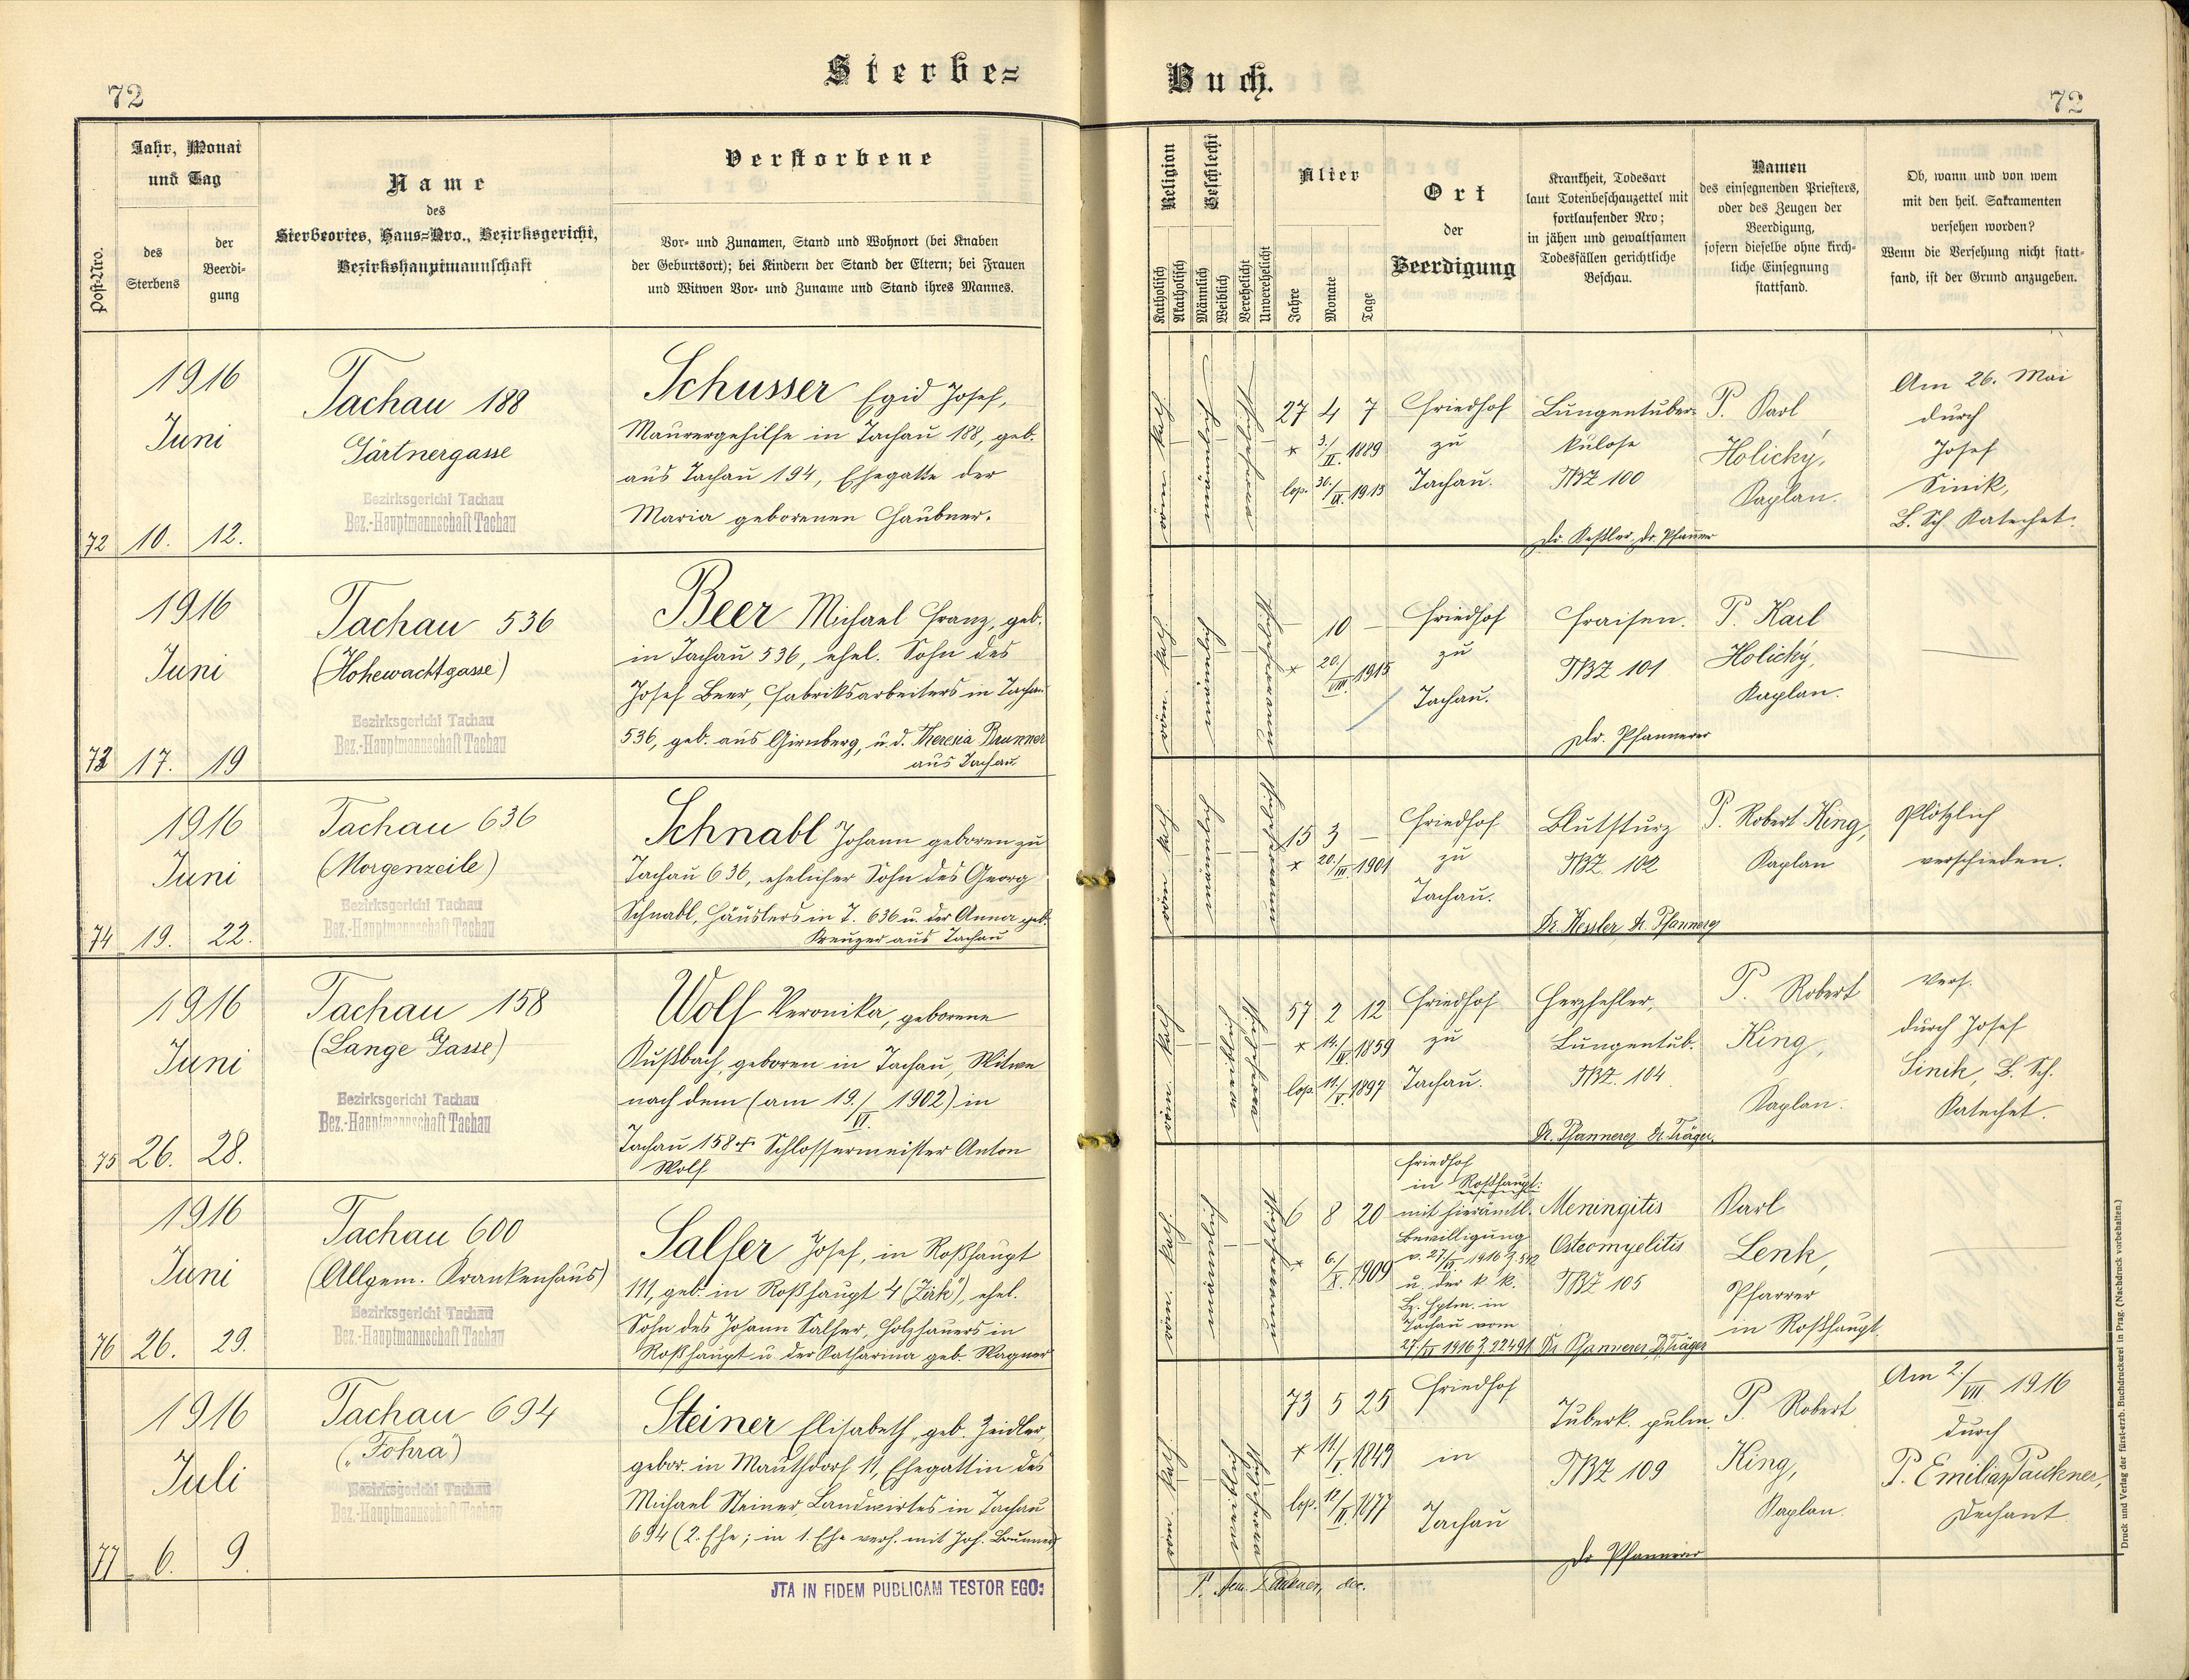 Sterbe=
Buch.
72
72
Post-Nro.
Jahr, Monat
und Tag
des
Sterbens
der
Beerdi-
gung
Name
des
Sterbeortes, Haus=Nro., Bezirksgericht,
Bezirkshauptmannschaft
Verstorbene
Vor- und Zunamen, Stand und Wohnort (bei Knaben
der Geburtsort); bei Kindern der Stand der Eltern; bei Frauen
und Witwen Vor- und Zuname und Stand ihres Mannes.
Religion
Katholisch
Akatholisch
Geschlecht
Männlich
Weiblich
Verehelicht
Unverehelicht
Alter
Jahre
Monate
Tage
Ort
der
Beerdigung
Krankheit, Todesart
laut Totenbeschauzettel mit
fortlaufender Nro;
in jähen und gewaltsamen
Todesfällen gerichtliche
Beschau.
Namen
des einsegnenden Priesters,
oder des Zeugen der
Beerdigung,
sofern dieselbe ohne kirch-
liche Einsegnung
stattfand.
Ob, wann und von wem
mit den heil. Sakramenten
versehen worden?
Wenn die Versehung nicht statt-
fand, ist der Grund anzugeben.
1916
Juni
72 10. 12.
Tachau 188
Gärtnergasse
Bezirksgericht Tachau
Bez.-Hauptmannschaft Tachau
Schusser Egid Josef,
Maurergehilfe in Tachau 188, geb.
aus Tachau 194, Ehegatte der
Maria geborenen Haubner.
röm. kath.
männlich
27 4 7
* 3./II. 1889
cop. 1915
Friedhof
zu
Tachau.
Lungentuber-
kulose
TBZ 100
Dr. Keßler, Dr. Pfanner
P. Karl
Holický,
Kaplan.
Am 26. Mai
durch
Josef
Sinik,
B. Sch. Katechet.
1916
Juni
73 17. 19
Tachau 536
(Hohewachtgasse)
Bezirksgericht Tachau
Bez.-Hauptmannschaft Tachau
Beer Michael Franz, geb.
in Tachau 536, ehel. Sohn des
Josef Beer, Fabriksarbeiters in Tachau
536, geb. aus Girnberg, u. d. Theresia Brunner
aus Tachau
röm. kath.
männlich
— 10 —
* 20./VIII. 1915
Friedhof
zu
Tachau.
Fraisen.
TBZ 101
Dr. Pfannerer
P. Karl
Holický,
Kaplan.
1916
Juni
74 19. 22.
Tachau 636
(Morgenzeile)
Bezirksgericht Tachau
Bez.-Hauptmannschaft Tachau
Schnabl Johann geboren zu
Tachau 636, ehelicher Sohn des Georg
Schnabl, Häuslers in T. 636 u. der Anna geb.
Kreuzer aus Tachau
röm. kath.
männlich
15 3 —
* 20./III. 1901
Friedhof
zu
Tachau.
Blutsturz
TBZ. 102
Dr. Kessler, Dr. Pfannerer
P. Robert King,
Kaplan
Plötzlich
verschieden.
1916
Juni
75 26. 28.
Tachau 158
(Lange Gasse)
Bezirksgericht Tachau
Bez.-Hauptmannschaft Tachau
Wolf Veronika, geborene
Kußbach, geboren in Tachau, Witwe
nach dem (am 19./VI. 1902) in
Tachau 158 + Schlossermeister Anton
Wolf
röm. kath.
weiblich
57 2 12
* 14./IV. 1859
cop. 11./V. 1897
Friedhof
zu
Tachau.
Herzfehler,
Lungentub.
TBZ. 104
Dr. Pfannerer, Dr. Träger.
P. Robert
King,
Kaplan.
Vers.
durch Josef
Sinik, B. Sch.
Katechet.
1916
Juni
76 26. 29.
Tachau 600
(Allgem. Krankenhaus)
Bezirksgericht Tachau
Bez.-Hauptmannschaft Tachau
Salfer Josef, in Roßhaupt
111, geb. in Roßhaupt 4 ("Zirk"), ehel.
Sohn des Johann Salfer, Holzhauers in
Roßhaupt u. der Katharina geb. Wagner
röm. kath.
männlich
6 8 20
* 6./X. 1909
Friedhof
in Roßhaupt
mit hierämtl.
Bewilligung
v. 27./VI. 1916 Z. 542
u. der k. k.
Bz. Hptm. in
Tachau vom
27./VI 1916 Z 22491
Meningitis
Osteomyelitis
TBZ 105
Dr. Pfannerer, Dr. Träger
Karl
Lenk,
Pfarrer
in Roßhaupt.
1916
Juli
77 6. 9.
Tachau 694
("Fohra")
Bezirksgericht Tachau
Bez.-Hauptmannschaft Tachau
Steiner Elisabeth, geb. Zeidler,
gebor. in Mauthdorf 11, Ehegattin des
Michael Steiner, Landwirtes in Tachau
694 (2. Ehe; in 1. Ehe verh. mit Joh. Brunner)
röm. kath.
weiblich
73 5 25
* 11./I. 1843
cop. 12./II. 1877
Friedhof
in
Tachau
Tuberk. pulm.
TBZ 109
Dr Pfannerer
P. Robert
King,
Kaplan.
Am 2./VII 1916
durch
P. Emilian Paukner,
Dechant
JTA IN FIDEM PUBLICAM TESTOR EGO:
P. Aem. Paukner, dec.
Druck und Verlag der fürst-erzb. Buchdruckerei in Prag. (Nachdruck vorbehalten.)